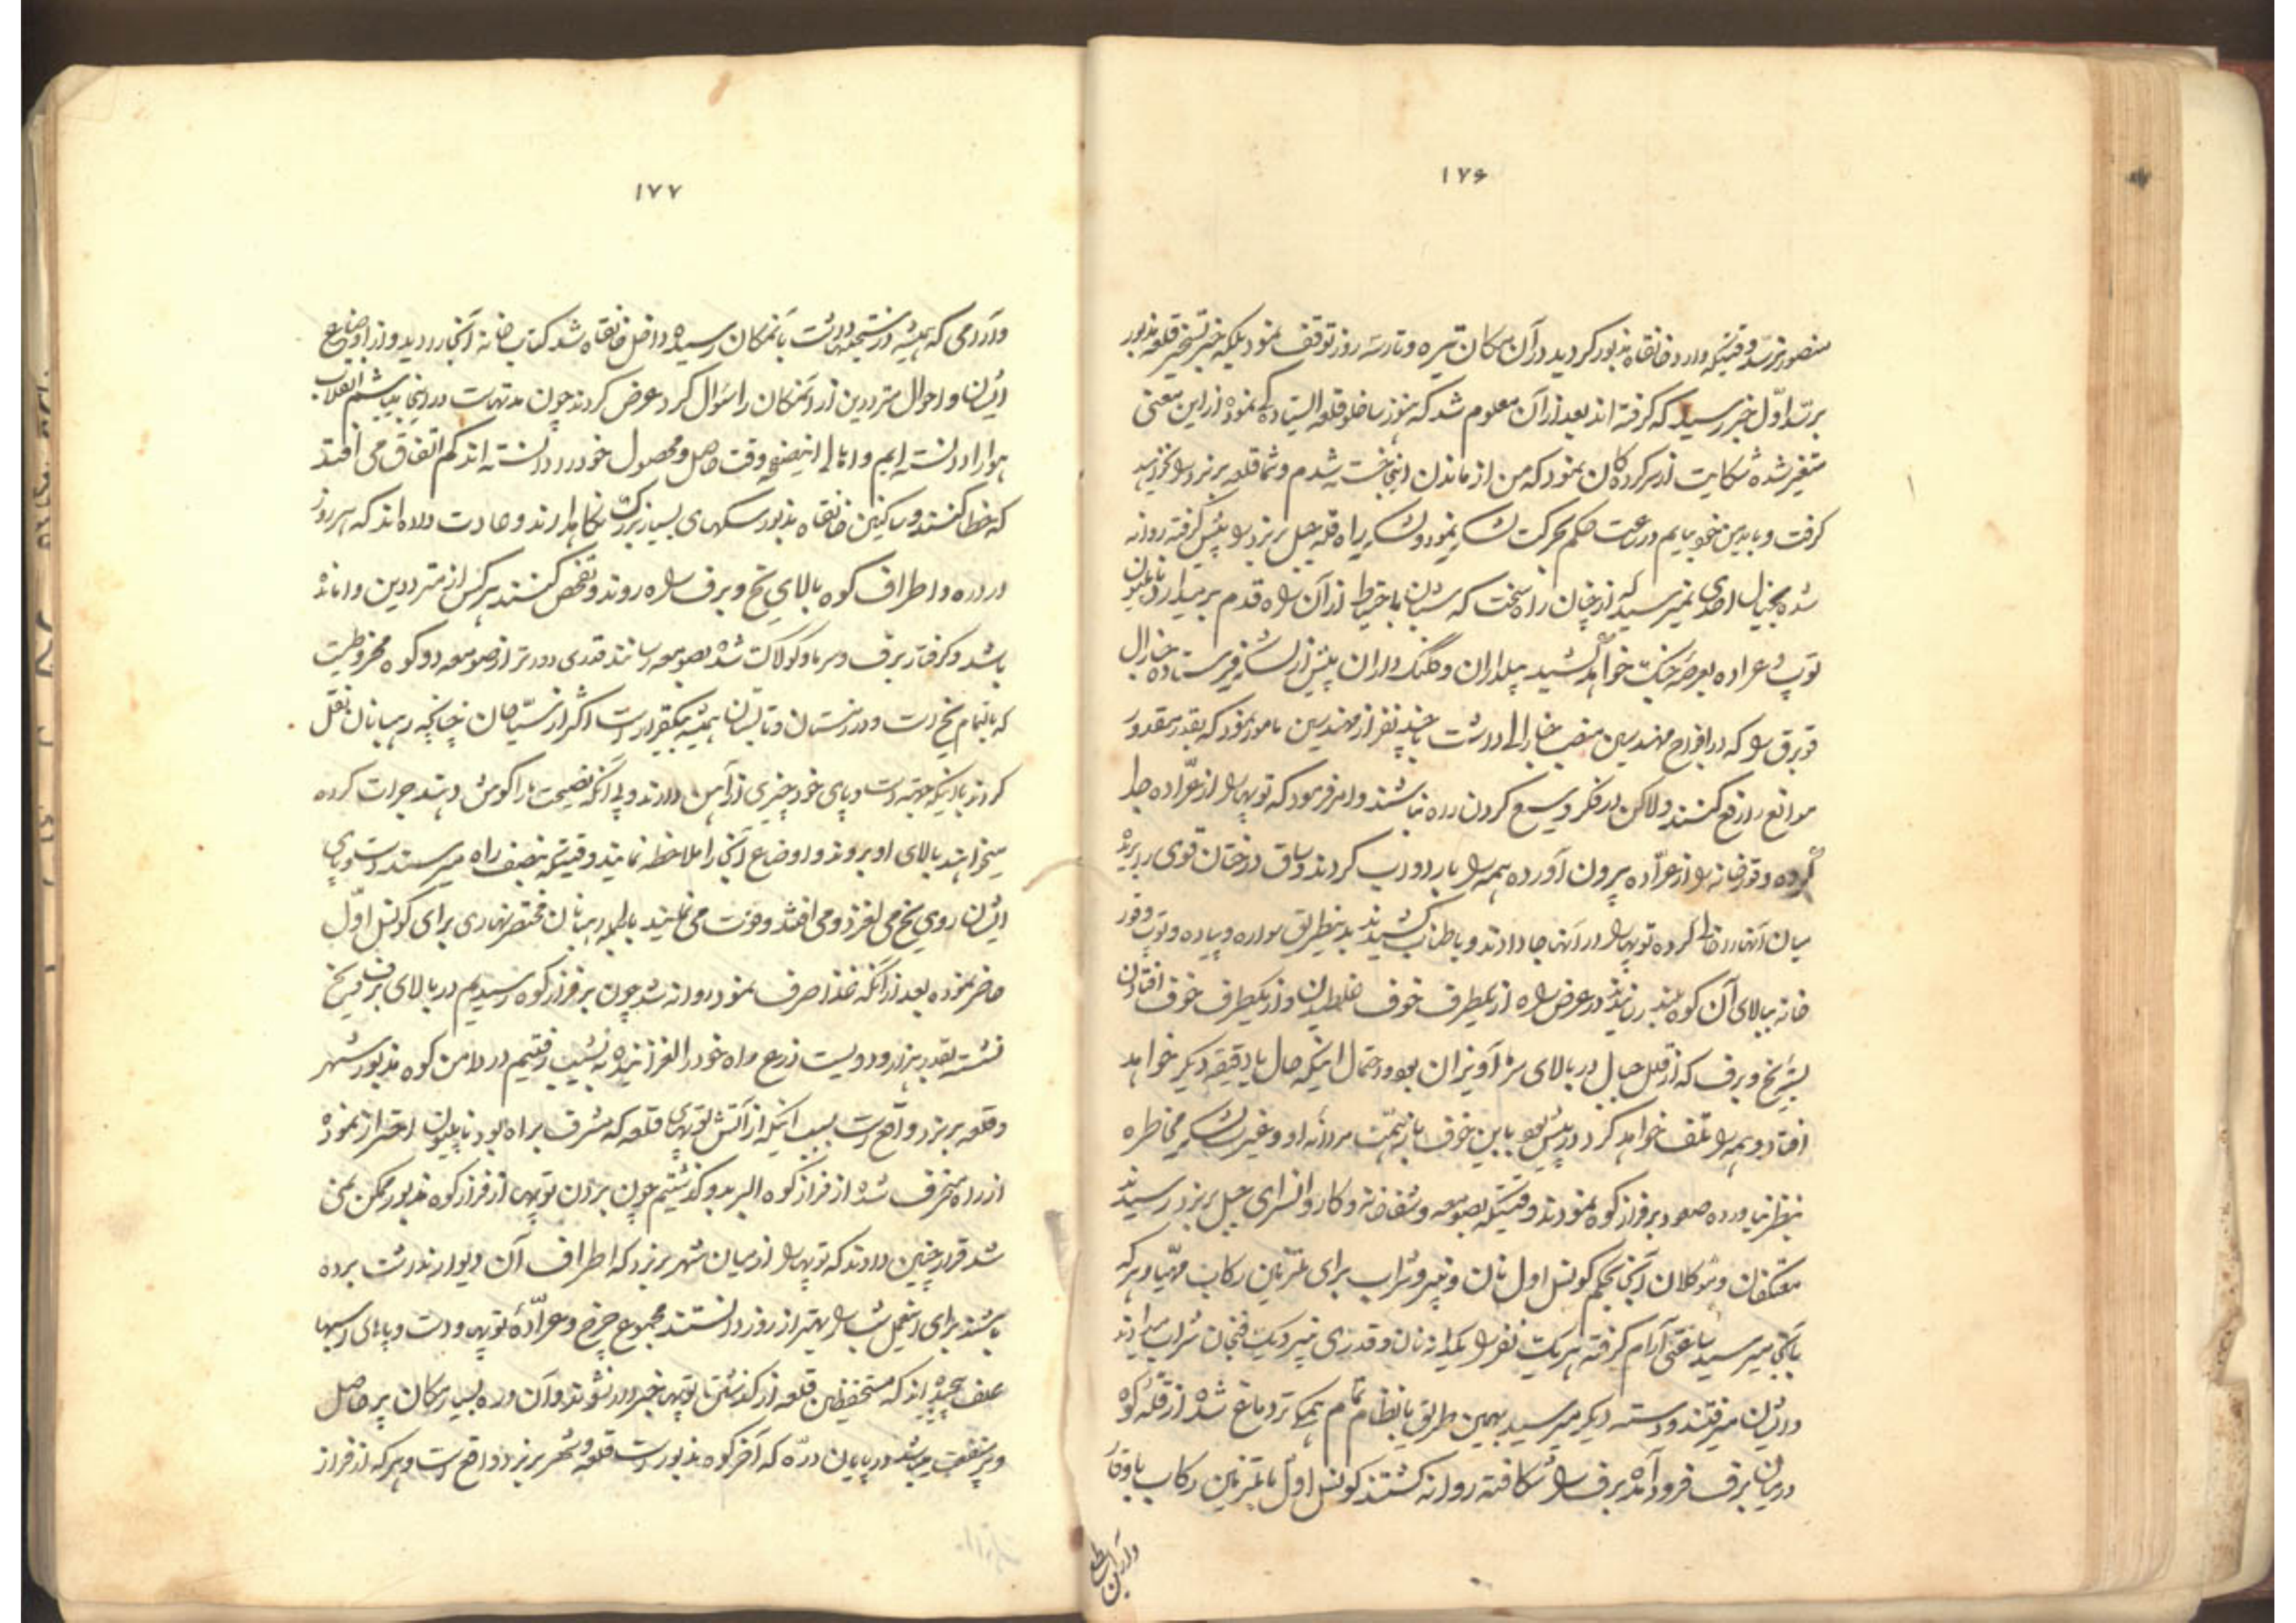 ۱۷۶
منصور نرسد وقتیکه وارد خانقاه مذبور کردید در آن مکان تیره و تار سه روز توقف نمود بلکه خبر تسخیر قلعه مذبور
برسد اوّل خبر رسید که کرفته اند بعد از آن معلوم شد که هنوز ساخلو قلعه ایستاده کی نموده از این معنی
متغیر شده شکایت از سرکرده کان نمود که من از ماندن اینجا خسته شدم و شما قلعه برنرد را نخواهید
کرفت و باید من خود بیایم در ساعت حکم بحرکت لشکر نمود و لشکر راه قله جبل برنرد را پیش کرفته روانه
شده بخیال احدی نمیرسید که از چنان راه سخت که شبانان با احتیاط از آن راه قدم برمیدارد ناپلیون
توپ و عراده بعرصه جنک خواهد کشید بیلداران و کلنک داران پیش از لشکر فرستاده جنرال
را که در افواج مهندسین منصب جنرالی داشت با چند نفر از مهندسین مامور نمود که بقدر مقدور
موانع را رفع کنند ولاکن در فکر وسیع کردن راه نباشند و امر فرمود که توپها را از عرّاده جدا
کرده و قورخانه را از عرّاده بیرون آورده همه را بار دواب کردند و ساق درختان قوی را بریده
میان آنها را خالی کرده توپها را در آنها جا دادند و با طناب کشیدند بدینطریق سواره و پیاده و توپ و قور
خانه ببالای آن کوه بلند رسانیدند در عرض راه از یکطرف خوف غلطیدن و از یکطرف خوف افتادن
یخ و برف که از قلل جبال در بالای سر آویزان بود و احتمال اینکه حال یا دقیقه دیکر خواهد
افتاد و همه را تلف خواهد کرد در پیش بود با این خوف باز همّت مردانه او و غیرت لشکر مخاطره
بنظر نیاورده صعود بر فراز کوه نمودند وقتیکه بصومعه و شفاخانه و کاروانسرای جبل برنرد رسیدند
معتکفان و موکلان آنجا بحکم کونسل اول نان و پنیر و شراب برای ملتزمین رکاب مهیّا و هر که
بآنجا میرسید ساعتی آرام کرفته هر یک نفر را یکپاره نان و قدری پنیر و یک فنجان شراب میدادند
و ایشان میرفتند و دسته دیکر میرسید بهمین طریق بانظام تمام همکی تردماغ شده از قله کوه
درمیان برف فرود آمده برف را شکافته روانه کشتند کونسل اول با ملتزمین رکاب با وقار
و آرامی
۱۷۷
و آرامی که همیشه در داشت بآنمکان رسیده داخل خانقاه شد کتاب خانه آنجا را دید و از اوضاع
ایشان و احوال مترددین از آنمکان را سئوال کرد عرض کردند چون مدتهاست در اینجا میباشیم انقلاب
هوا را دانسته ایم و اهالی وقت حاصل و محصول خود را دانسته اند کم اتفاق می افتد
که خطا کنند و ساکنین خانقاه مذبور سکهای بسیار بزرک نکاهدارند و عادت داده اند که هر روز
در دره و اطراف کوه بالای یخ و برف راه روند و تفحص کنند هر کس از مترددین وامانده
باشد و کرفتار برف و سرما و کولاک شده بصومعه رسانند قدری دورتر از صومعه دو کوه مخروطیست
که بالتمام یخ است و در زمستان و تابستان همیشه بیکقرار است اکثر از سیّاحان چنانچه رهبانان نقل
کردند با اینکه بجهة دست و پای خود چیزی از آهن دارند و بی آنکه نصیحت ما را کوش دهند جرات کرده
میخواهند بالای او بروند و اوضاع آنجا را ملاحظه نمایند وقتیکه بنصف راه میرسند دست و پای
ایشان روی یخ می لغزد و می افتند و فوت می نمایند بالجمله رهبانان مختصر نهاری برای کونسل اوّل
حاضر نموده بعد از آنکه غذا صرف نمود روانه شد چون بر فراز کوه رسیدیم در بالای برف و یخ
نشسته بقدر هزار و دویست زرع راه خود را لغزانیده به نشیب رفتیم در دامن کوه مذبور شهر
و قلعه برنرد واقع است بسبب اینکه از آتش توپهای قلعه که مشرف براه بود ناپلیون احتراز نموده
از راه منحرف شده از فراز کوه البریدو کذشتیم چون بردن توپها از فراز کوه مذبور ممکن نمی
شد قرار چنین دادند که توپها را از میان شهر برنرد که اطراف آن دیوار نداشت برده
باشند برای اینعمل شب را بهتر از روز دانستند مجموع چرخ و عرّادۀ توپها و دست و پاهای اسبها
علف پیچیدند که مستحفظین قلعه از کذشتن توپها خبردار نشوند و آن دره بسیار مکان پر حاصل
و پر منفعت میباشد در پایان درّه که آخر کوه مذبور است قلعه و شهر برنرد واقع است و هر که از فراز